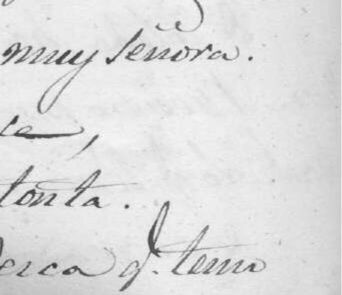 muy señora.
ce,
tonta.
erca q.^e temo